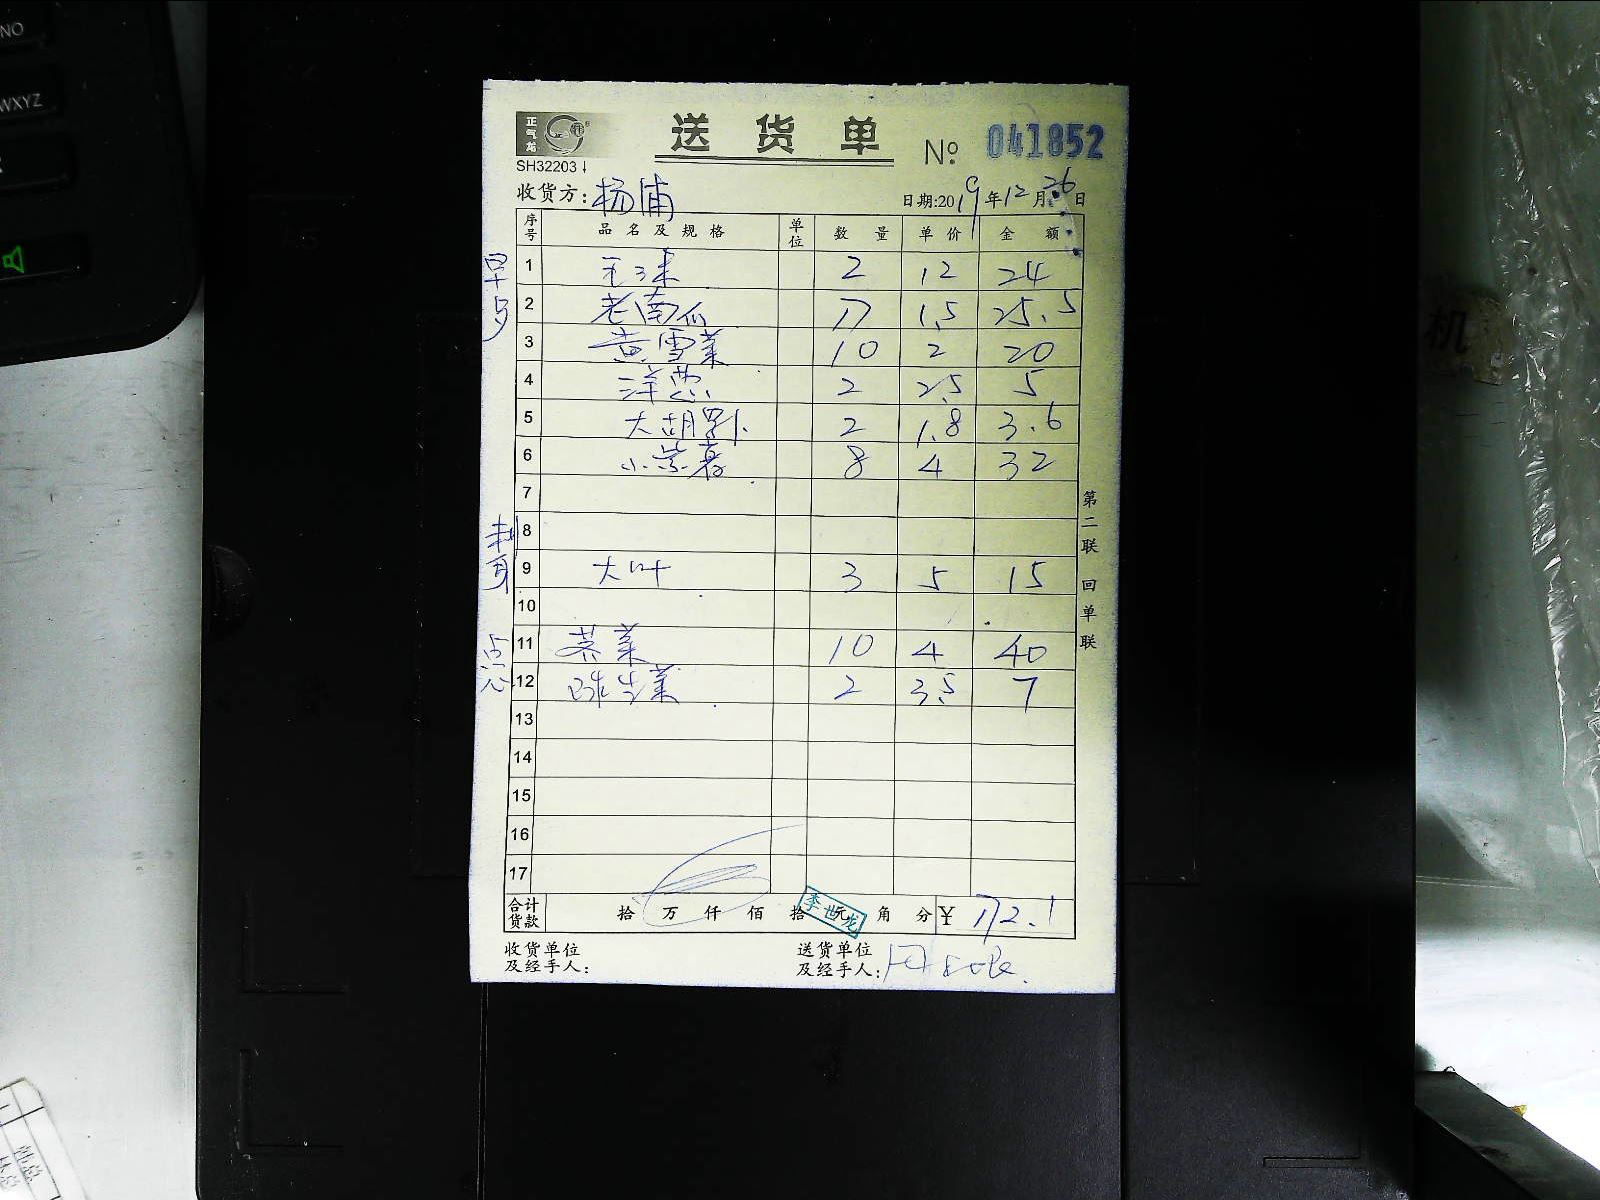 NO
WXYZ
正气龙
送货单
№ 041852
SH32203
收货方:杨浦
日期:2019年12月26日
序号 品名及规格 单位 数量 单价 金额
早点
1 2 12 24
2 老南瓜 17 1.5 25.5
3 黄雪菜 10 2 20
4 洋葱 2 2.5 5
5 大胡萝卜 2 1.8 3.6
6 小紫薯 8 4 32
7
8
9 大叶 3 5 15
10
点心
11 荠菜 10 4 40
12 球生菜 2 3.5 7
13
14
15
16
17
合计货款 拾万仟佰拾元角分 ¥ 172.1
李世龙
收货单位 送货单位
及经手人: 及经手人:
第二联 回单联
机